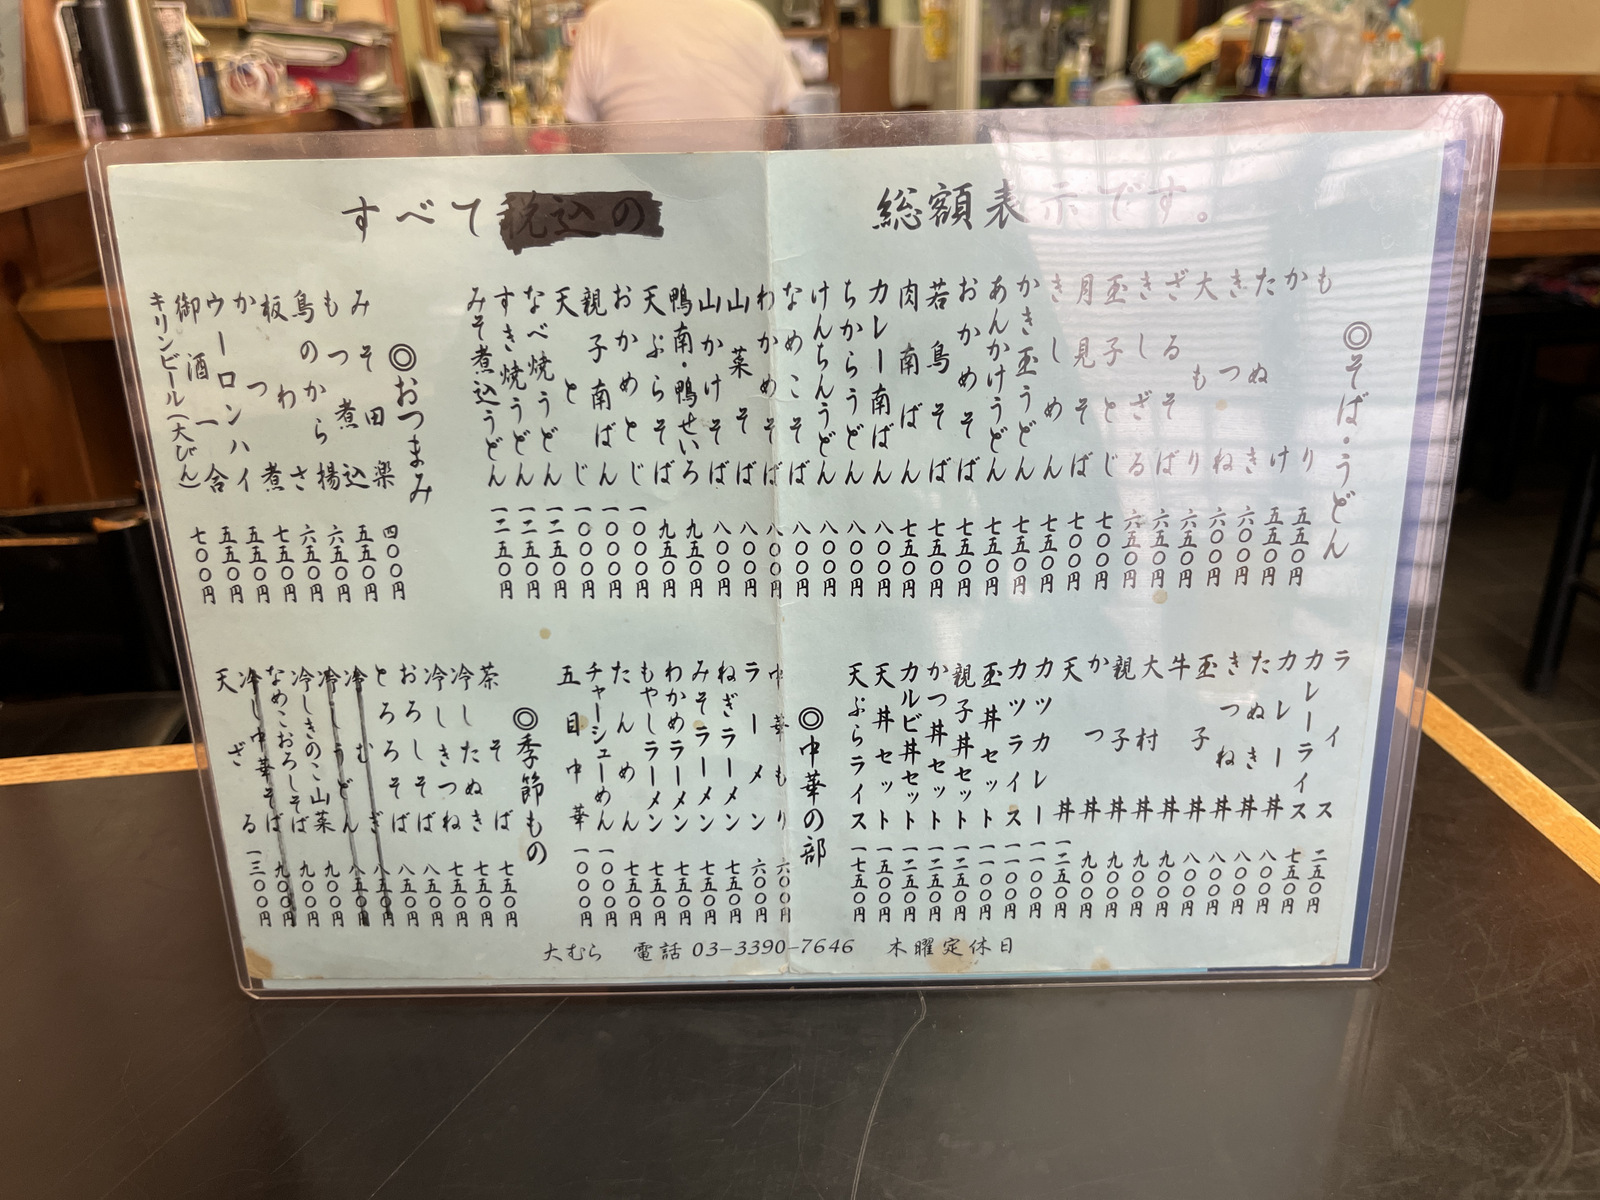 すべて税込の 総額表示です。
◎そば・うどん
もり 五五〇円
かけ 五五〇円
たぬき 六〇〇円
きつね 六〇〇円
大もり 六五〇円
ざるそば 六五〇円
きしざる 六五〇円
玉子とじ 七〇〇円
月見そば 七〇〇円
きしめん 七五〇円
かき玉うどん 七五〇円
あんかけうどん 七五〇円
おかめそば 七五〇円
若鳥そば 七五〇円
肉南ばん 七五〇円
カレー南ばん 八〇〇円
ちからうどん 八〇〇円
けんちんうどん 八〇〇円
なめこそば 八〇〇円
わかめそば 八〇〇円
山菜そば 八〇〇円
山かけそば 八〇〇円
鴨南・鴨せいろ 九五〇円
天ぷらそば 九五〇円
おかめとじ 一〇〇〇円
親子南ばん 一〇〇〇円
天とじ 一〇〇〇円
なべ焼うどん 一二五〇円
すき焼うどん 一二五〇円
みそ煮込うどん 一二五〇円
◎おつまみ
みそ田楽 四〇〇円
もつ煮込 五五〇円
鳥のから揚 六五〇円
板わさ 六五〇円
かつ煮 七五〇円
ウーロンハイ 五五〇円
御酒一合 五五〇円
キリンビール(大びん) 七〇〇円
ライス 二五〇円
カレーライス 七五〇円
カレー丼 八〇〇円
たぬき丼 八〇〇円
きつね丼 八〇〇円
玉子丼 八〇〇円
牛丼 九〇〇円
大村丼 九〇〇円
親子丼 九〇〇円
かつ丼 九〇〇円
天丼 一二五〇円
カツカレー 一一〇〇円
カツライス 一一〇〇円
玉丼セット 一一〇〇円
親子丼セット 一二五〇円
かつ丼セット 一二五〇円
カルビ丼セット 一二五〇円
天丼セット 一五〇〇円
天ぷらライス 一七五〇円
◎中華の部
中華もり 六〇〇円
ラーメン 六〇〇円
ねぎラーメン 七五〇円
みそラーメン 七五〇円
わかめラーメン 七五〇円
もやしラーメン 七五〇円
たんめん 七五〇円
チャーシューめん 一〇〇〇円
五目中華 一〇〇〇円
◎季節もの
茶そば 七五〇円
冷したぬき 七五〇円
冷しきつね 七五〇円
おろしそば 八五〇円
とろろそば 八五〇円
冷むぎ 八五〇円
冷しうどん 八五〇円
冷しきのこ山菜 九〇〇円
なめこおろしそば 九〇〇円
冷し中華そば 九〇〇円
天ざる 一三〇〇円
大むら 電話 03-3390-7646 木曜定休日